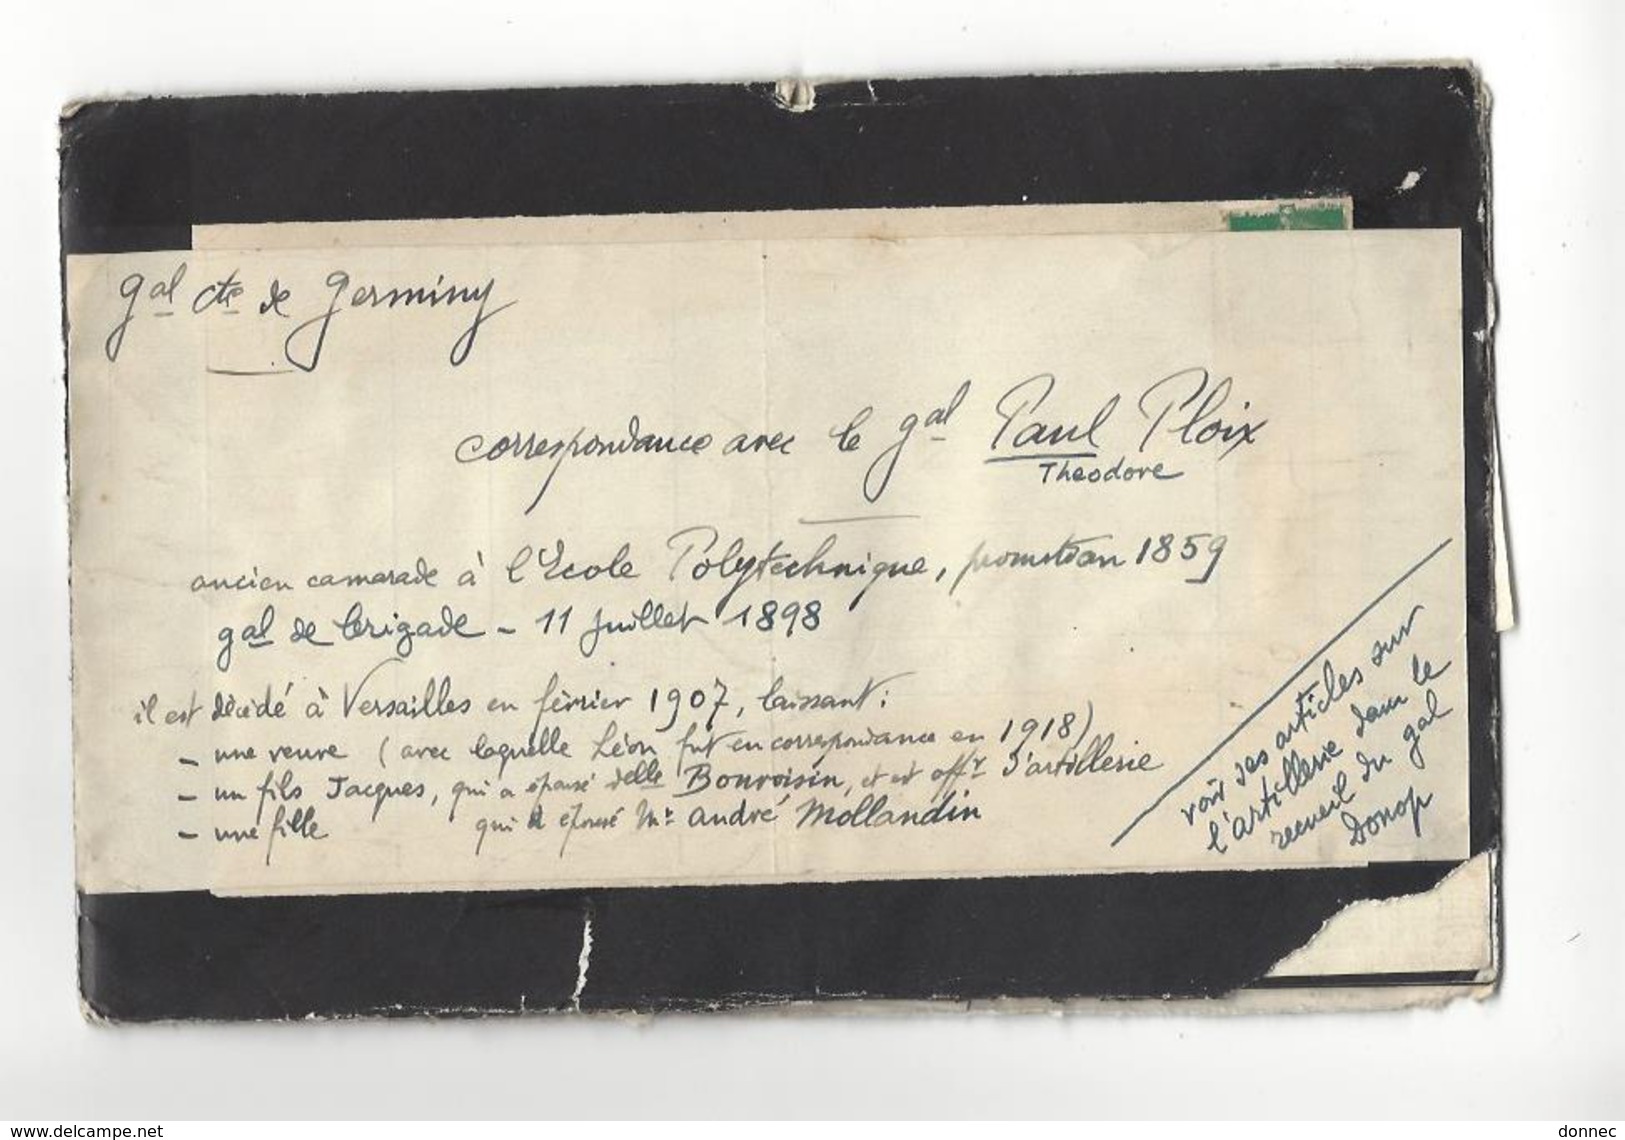 gal cte de Germiny
correspondance avec le gal Paul Ploix
Theodore
ancien camarade à l'Ecole Polytechnique, promotion 1859
gal de brigade - 11 juillet 1898
il est décédé à Versailles en février 1907, laissant:
- une veuve (avec laquelle Léon fut en correspondance en 1918)
- un fils Jacques, qui a épousé delle Bonvoisin, et est offr d'artillerie
- une fille qui a épousé Mr André Mollandin
voir ses articles sur
l'artillerie dans le
recueil du gal
Donop
www.delcampe.net
donnec